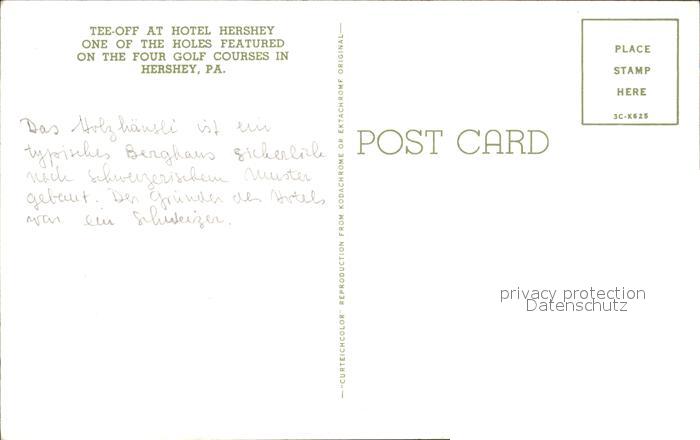 TEE-OFF AT HOTEL HERSHEY
ONE OF THE HOLES FEATURED
ON THE FOUR GOLF COURSES IN
HERSHEY, PA.
Das Holzhäusli ist ein
typisches Berghaus sicherlich
nach schweizerischem Muster
gebaut. Der Gründer des Hotels
war ein Schweizer.
"CURTEICHCOLOR" REPRODUCTION FROM KODACHROME OR EKTACHROME ORIGINAL
POST CARD
PLACE
STAMP
HERE
3C-K625
privacy protection
Datenschutz